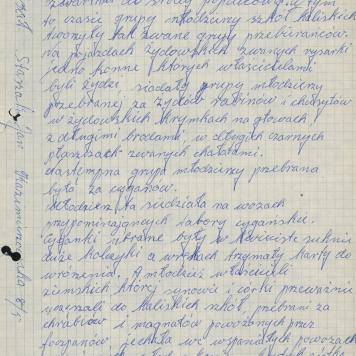 to czasie grupy młodzieży szkół Kaliskich
tworzyły tak zwane grupy przebierańców.
na pojazdach żydowskich zwanych rysarki
jedno konne, których właścicielami
byli żydzi, siadały grupy młodzieży
przebranej za żydów rabinów i chusytów
w żydowskich krymkach na głowach,
z długimi brodami, w długich czarnych
płaszczach zwanych chałatami.
następna grupa młodzieży przebrana
była za cyganów.
Młodzież ta siedziała na wozach
przypominających tabory cygańskie.
Cyganki ubrane były w kwieciste suknie
duże kolczyki a w rękach trzymały karty do
wróżenia. A młodzież właścicieli
ziemskich której synowie i córki przeważnie
uczęszczali do Kaliskich szkół, przebrani za
hrabiów i magnatów powożonych przez
forszpanów, jechała we wspaniałych powozach
Stasiak Jan Kazimierzowska